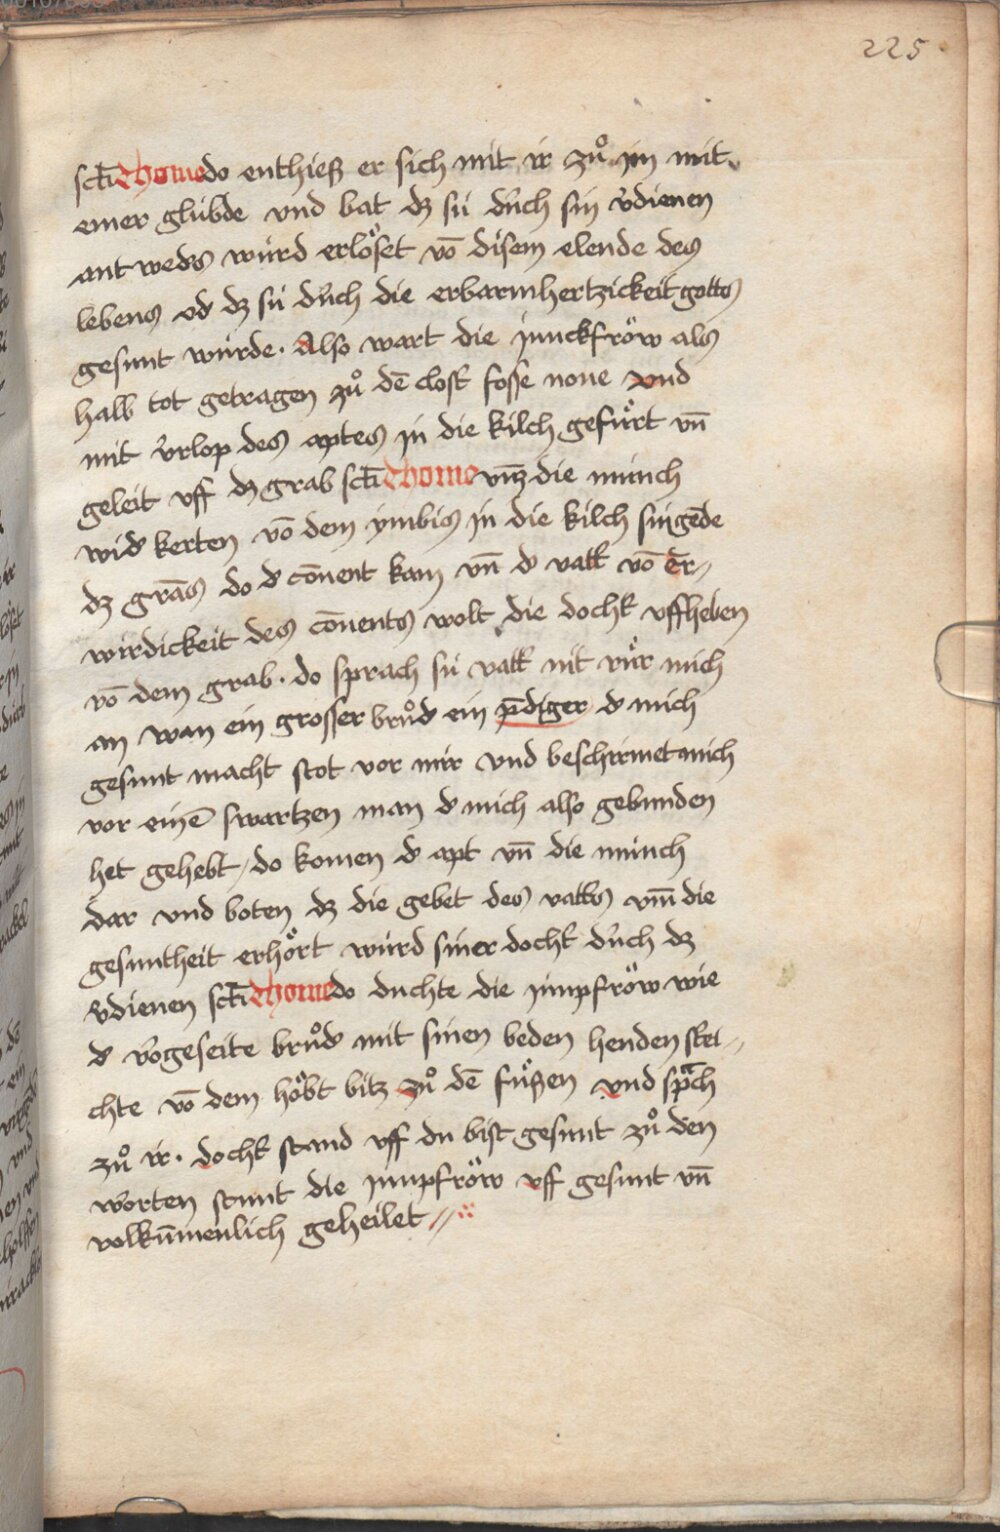 225
scti Thome do enthieß er sich mit ir zuͦ im mit
einer glúbde vnd bat dz sú durch sin v̉dienen
antweders wúrd erlöset vō disem elende des
lebens od dz sú durch die erbarmhertzickeit gottes
gesunt wúrde · Also wart die junckfröw als
halb tot getragen zuͦ dē closť fosse none vnd
mit vrlop des aptes in die kilch gefürt vn̄
geleit vff dz grab scti Thome vntz die münch
wid̉ kerten vō dem ymbis in die kilch singēde
dz grās do d̉ cōuent kam vn̄ d̉ vatť vō Er⸗
wirdickeit des cōuents wolt die dochť vffheben
vō dem grab · do sprach sú vatť nit rür mich
an wan ein grosser bruͦd̉ ein p̄diger d̉ mich
gesunt macht stot vor mir vnd beschirmet mich
vor einē swartzen man d̉ mich also gebunden
het gehebt / do komen d̉ apt vn̄ die münch
dar vnd boten dz die gebet des vatťs vm̄ die
gesuntheit erhört wúrd siner dochť durch dz
v̉dienen scti Thome do duchte die jumpfröw wie
d̉ vorgeseite bruͦd̉ mit sinen beden henden strei⸗
chte vō dem höbt bitz zuͦ dē füßen vnd spͣch
zuͦ ir · dochť stand vff du bist gesunt zuͦ den
worten stunt die jumpfröw vff gesunt vn̄
volkūmenlich geheilet //